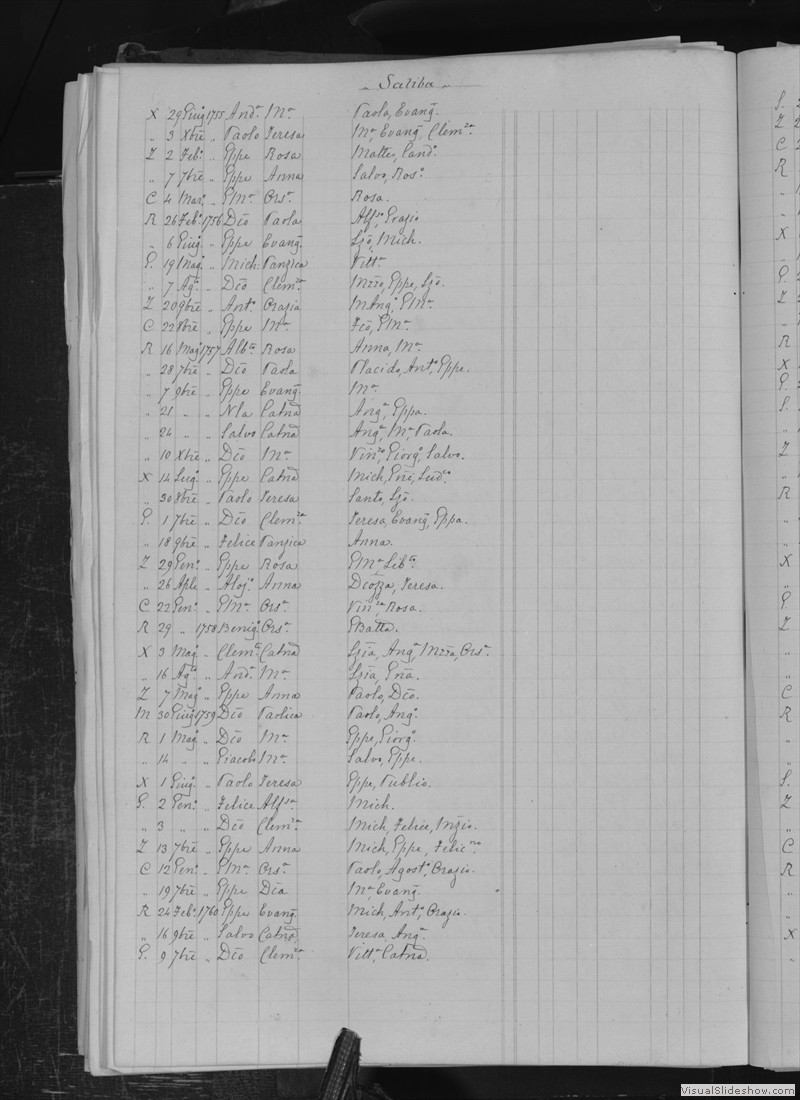 Saliba
X 29 Giug. 1755 And.ª M.ª Paolo, Evang.
„ 3 Xbre „ Paolo Teresa M.ª Evang, Clem.za
Z 2 Feb.º „ Gppe Rosa Matteo, Cand.ª
„ 7 7bre „ Gppe Anna Salvo, Ros.ª
C 4 Mar. „ GM.ª Ors.ª Rosa.
R 26 Feb.º 1756 Dco Paola Alf.so Grazio
„ 6 Giug. „ Gppe Evang. Gio, Mich.
G. 19 Mag. „ Mich. Vanzica Vitt.ª
„ 7 Ag.to „ Dco Clem.za Gppe, Gio.
Z 20 9bre „ Ant.º Grazia MAng.º GM.ª
C 22 8bre „ Gppe M.ª Fco, GM.ª
R 16 Mag. 1757 Alb.to Rosa Anna, M.ª
„ 28 7bre „ Dco Paola Placido, Ant.º, Gppe.
„ 7 9bre „ Gppe Evang. M.ª
„ 21 „ „ Nla Catna Ang.ª, Gppa.
„ 24 „ „ Salvo Catna Ang.ª, M.ª Paola.
„ 10 Xbre „ Dco M.ª Vin.zo Giorg.º, Salvo.
X 14 Lug. „ Gppe Catna Mich,
„ 30 8bre „ Paolo Teresa Santo, Gio.
G. 1 7bre „ Dco Clem.za Teresa, Evang, Gppa.
„ 18 9bre „ Felice Vanzica Anna.
Z 29 Gen.º „ Gppe Rosa GM.ª Lib.ta
„ 26 Aple „ Aloj.º Anna Teresa.
C 22 Gen.º „ GM.ª Ors.ª Vin.za Rosa.
R 29 „ 1758 Benig. Ors.ª GBatta.
X 3 Mag. „ Clem.te Catna Gia, Ang.ª, Ors.ª
„ 16 Ag.to „ And.ª M.ª Gia,
Z 7 Mag. „ Gppe Anna Paolo, Dco.
M 30 Giug. 1759 Dco Paolica Paolo, Ang.º
R 1 Mag. „ Dco M.ª Gppe, Giorg.º
„ 14 „ „ Giacob. M.ª Salvo, Gppe.
X 1 Giug. „ Paolo Teresa Gppe, Publio.
G. 2 Gen.º „ Felice Alf.sa Mich.
„ 3 „ „ Dco Clem.za Mich, Felice,
Z 13 7bre „ Gppe Anna Mich, Gppe, Felic.no
C 12 Gen.º „ GM.ª Ors.ª Paolo, Agost.º, Grazio.
„ 19 7bre „ Gppe Dca M.ª Evang.
R 24 Feb.º 1760 Gppe Evang. Mich, Ant.º, Grazio.
„ 16 9bre „ Salvo Catna Teresa, Ang.ª
G. 9 7bre „ Dco Clem.za Vitt.ª, Catna.
VisualSlideshow.com